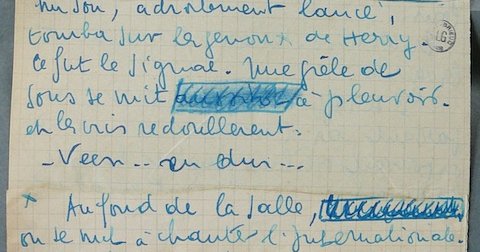 un son, adroitement lancé,
tomba sur les genoux de Henry.
Ce fut le signal. Une grêle de
sous se mit à pleuvoir.
et les cris redoublèrent.
_ Veen.. en dui...
x Au fond de la salle,
on se mit à chanter l'internationale